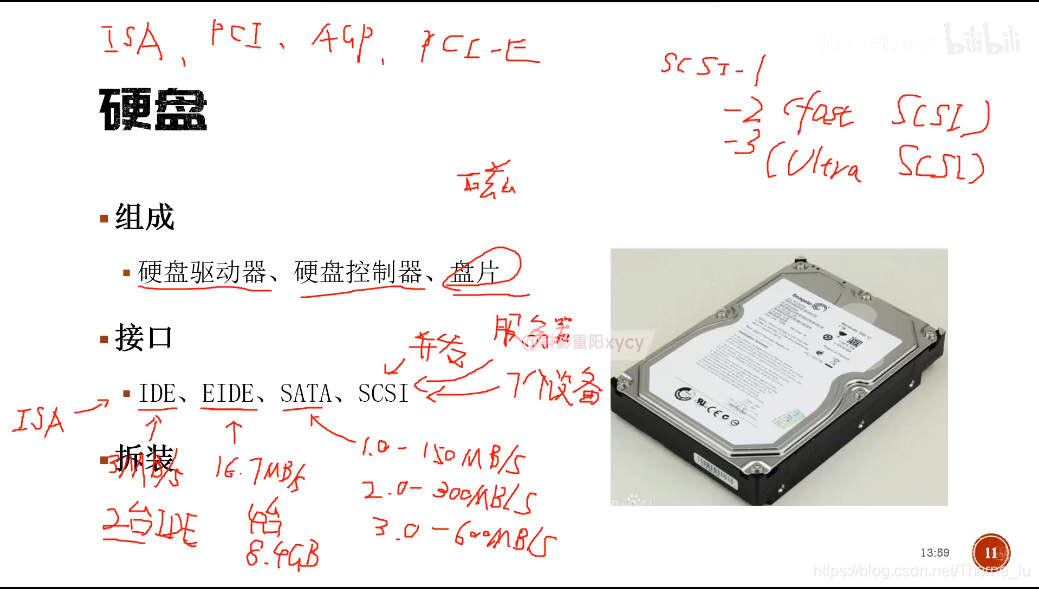 ISA、PCI、AGP、PCI-E
bilibili
SCSI-1
-2 (fast SCSI)
-3 (Ultra SCSI)
硬盘
磁
▪组成
▪硬盘驱动器、硬盘控制器、盘片
▪接口
并发
服务器
重阳xycy
▪IDE、EIDE、SATA、SCSI
7个设备
ISA
▪拆装
3MB/s
16.7MB/s
1.0-150MB/s
2.0-300MB/s
3.0-600MB/s
2台IDE
4台
8.4GB
Seagate
SATA
13:59
11
https://blog.csdn.net/Thorne_lu